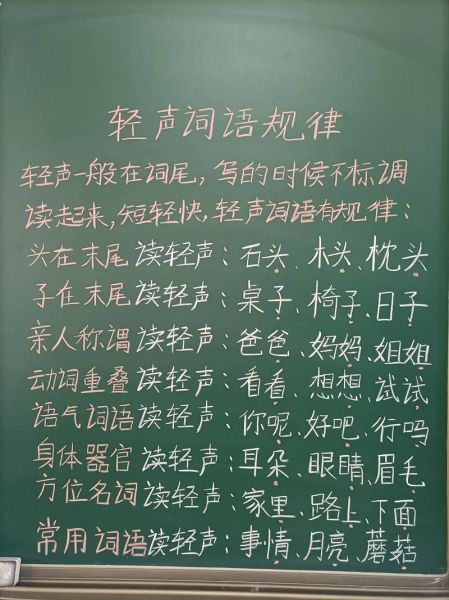 轻声词语规律
轻声一般在词尾,写的时候不标调
读起来,短轻快,轻声词语有规律:
头在末尾读轻声:石头、木头、枕头
子在末尾读轻声:桌子、椅子、日子
亲人称谓读轻声:爸爸、妈妈、姐姐
动词重叠读轻声:看看、想想、试试
语气词语读轻声:你呢、好吧、行吗
身体器官读轻声:耳朵、眼睛、眉毛
方位名词读轻声:家里、路上、下面
常用词语读轻声:事情、月亮、蘑菇